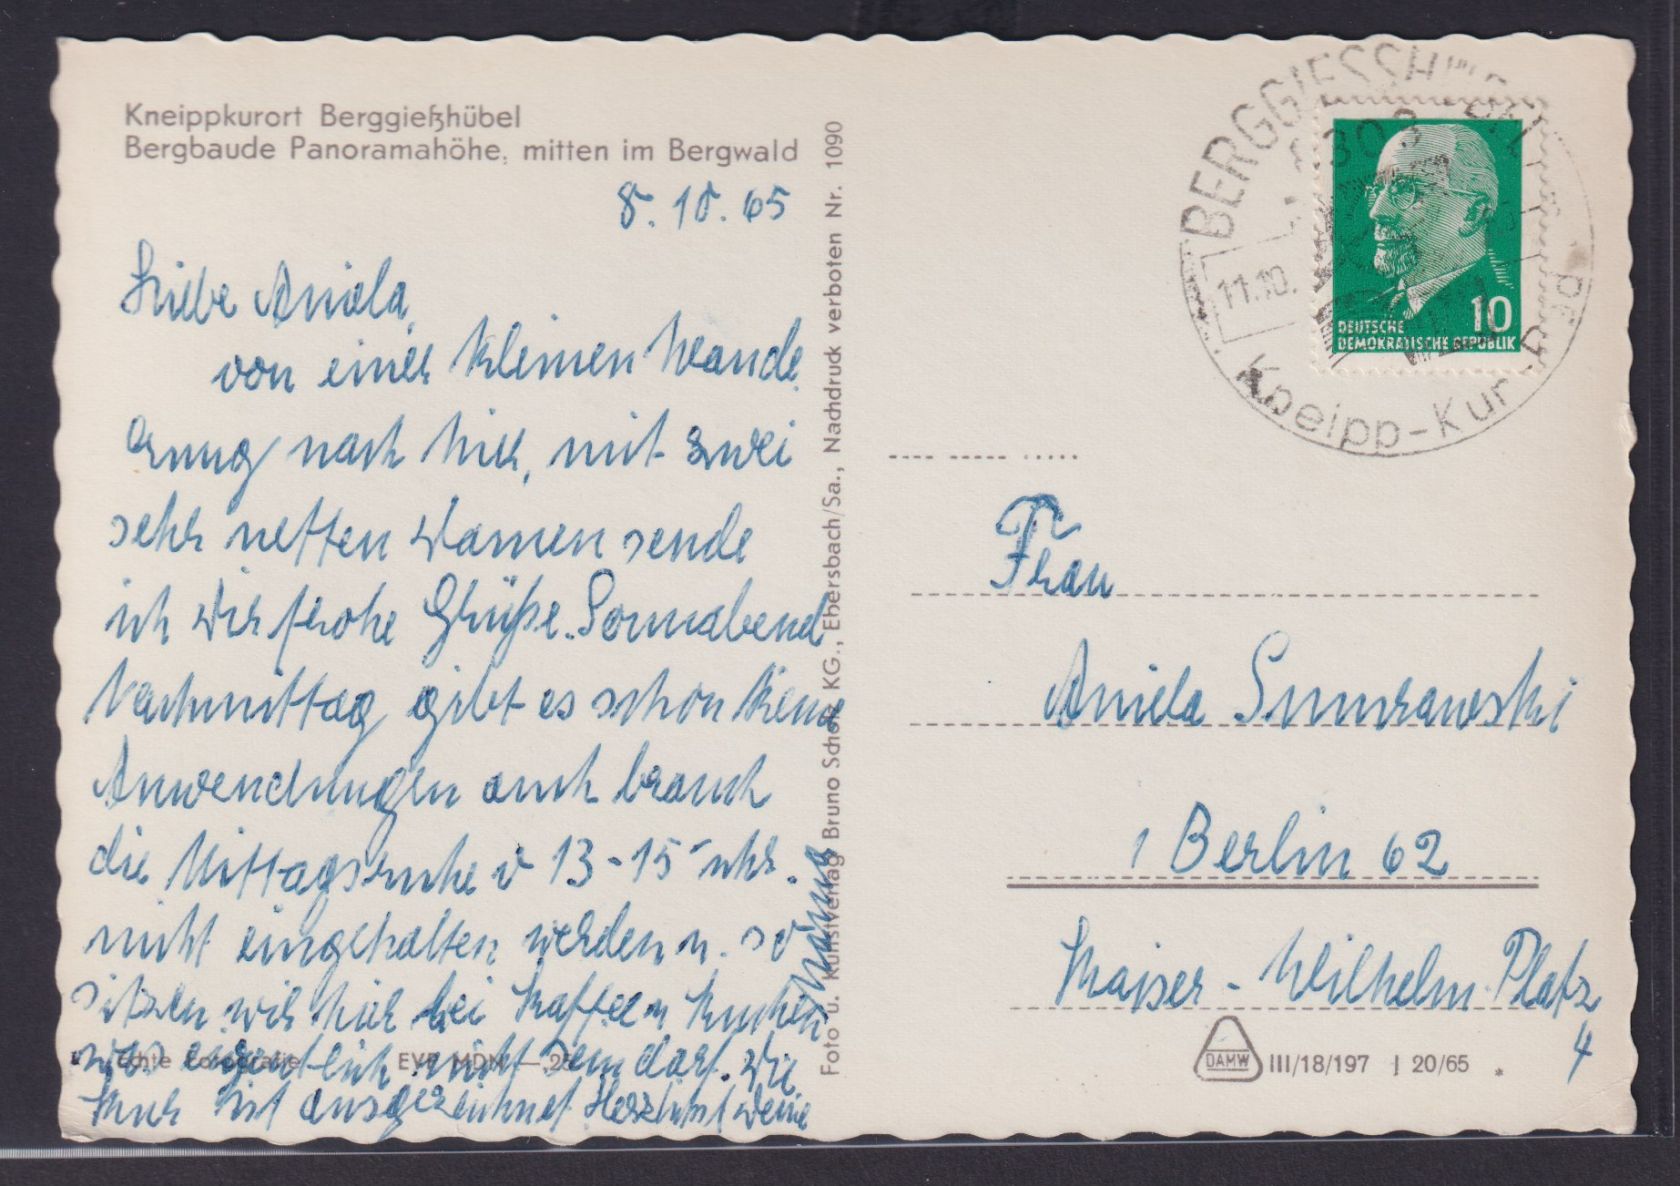 Kneippkurort Berggießhübel
Bergbaude Panoramahöhe, mitten im Bergwald
8. 10. 65
Liebe Aniela,
von einer kleinen Wande
rung nach hier, mit zwei
sehr netten Damen sende
ich Dir frohe Grüße. Sonnabend
Nachmittag gibt es schon keine
Anwendungen auch brauch
die Mittagsruhe v 13-15 Uhr.
nicht eingehalten werden u. so
sitzen wir hier bei Kaffee u Kuchen
was eigentlich nicht sein darf. Die
Kur ist ausgezeichnet Herzlichst Deine
Echte Fotografie EVP MDN —.25
Foto u. Kunstverlag Bruno Scholz KG., Ebersbach/Sa., Nachdruck verboten Nr. 1090
BERGGIESSHÜBEL
11.10.
Kneipp-Kur
10
DEUTSCHE
DEMOKRATISCHE REPUBLIK
Frau
Aniela
1 Berlin 62
Kaiser-Wilhelm Platz
4
DAMW III/18/197 I 20/65